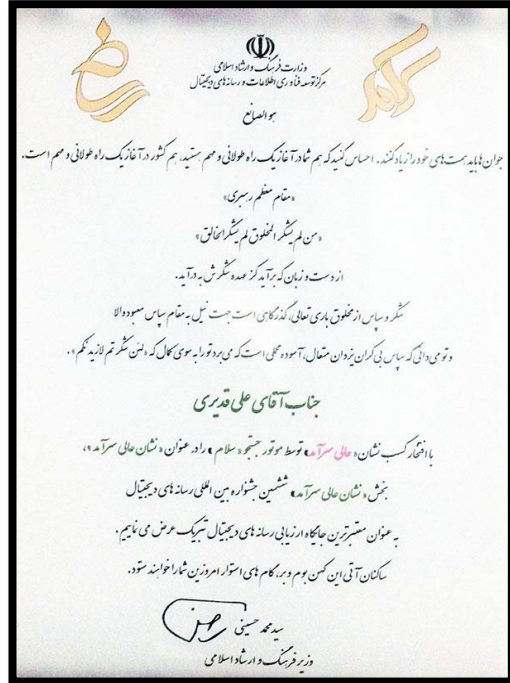 وزارت فرهنگ و ارشاد اسلامی
مرکز توسعه فناوری اطلاعات و رسانه های دیجیتال
هو الصانع
جوان ها باید همت های خود را زیاد کنند. احساس کنید که هم شما در آغاز یک راه طولانی و مهم هستید، هم کشور در آغاز یک راه طولانی و مهم است.
«مقام معظم رهبری»
«من لم یشکر المخلوق لم یشکر الخالق»
از دست و زبان که برآید کز عهده شکرش به درآید.
شکر و سپاس از مخلوق باری تعالی، گذرگاهی است جهت نیل به مقام سپاس معبود والا
و تو می دانی که سپاس بی کران یزدان متعال، آسوده محلی است که می برد تو را به سوی کمال که «لئن شکرتم لازیدنکم».
جناب آقای علی قدیری
با افتخار کسب نشان «عالی سرآمد» توسط موتور جستجو «سلام» را در عنوان «نشان عالی سرآمد»،
بخش «نشان عالی سرآمد» ششمین جشنواره بین المللی رسانه های دیجیتال
به عنوان معتبرترین جایگاه ارزیابی رسانه های دیجیتال تبریک عرض می نماییم.
ساکنان آتی این کهن بوم و بر، گام های استوار امروزین شما را خواهند ستود.
سید محمد حسینی
وزیر فرهنگ و ارشاد اسلامی